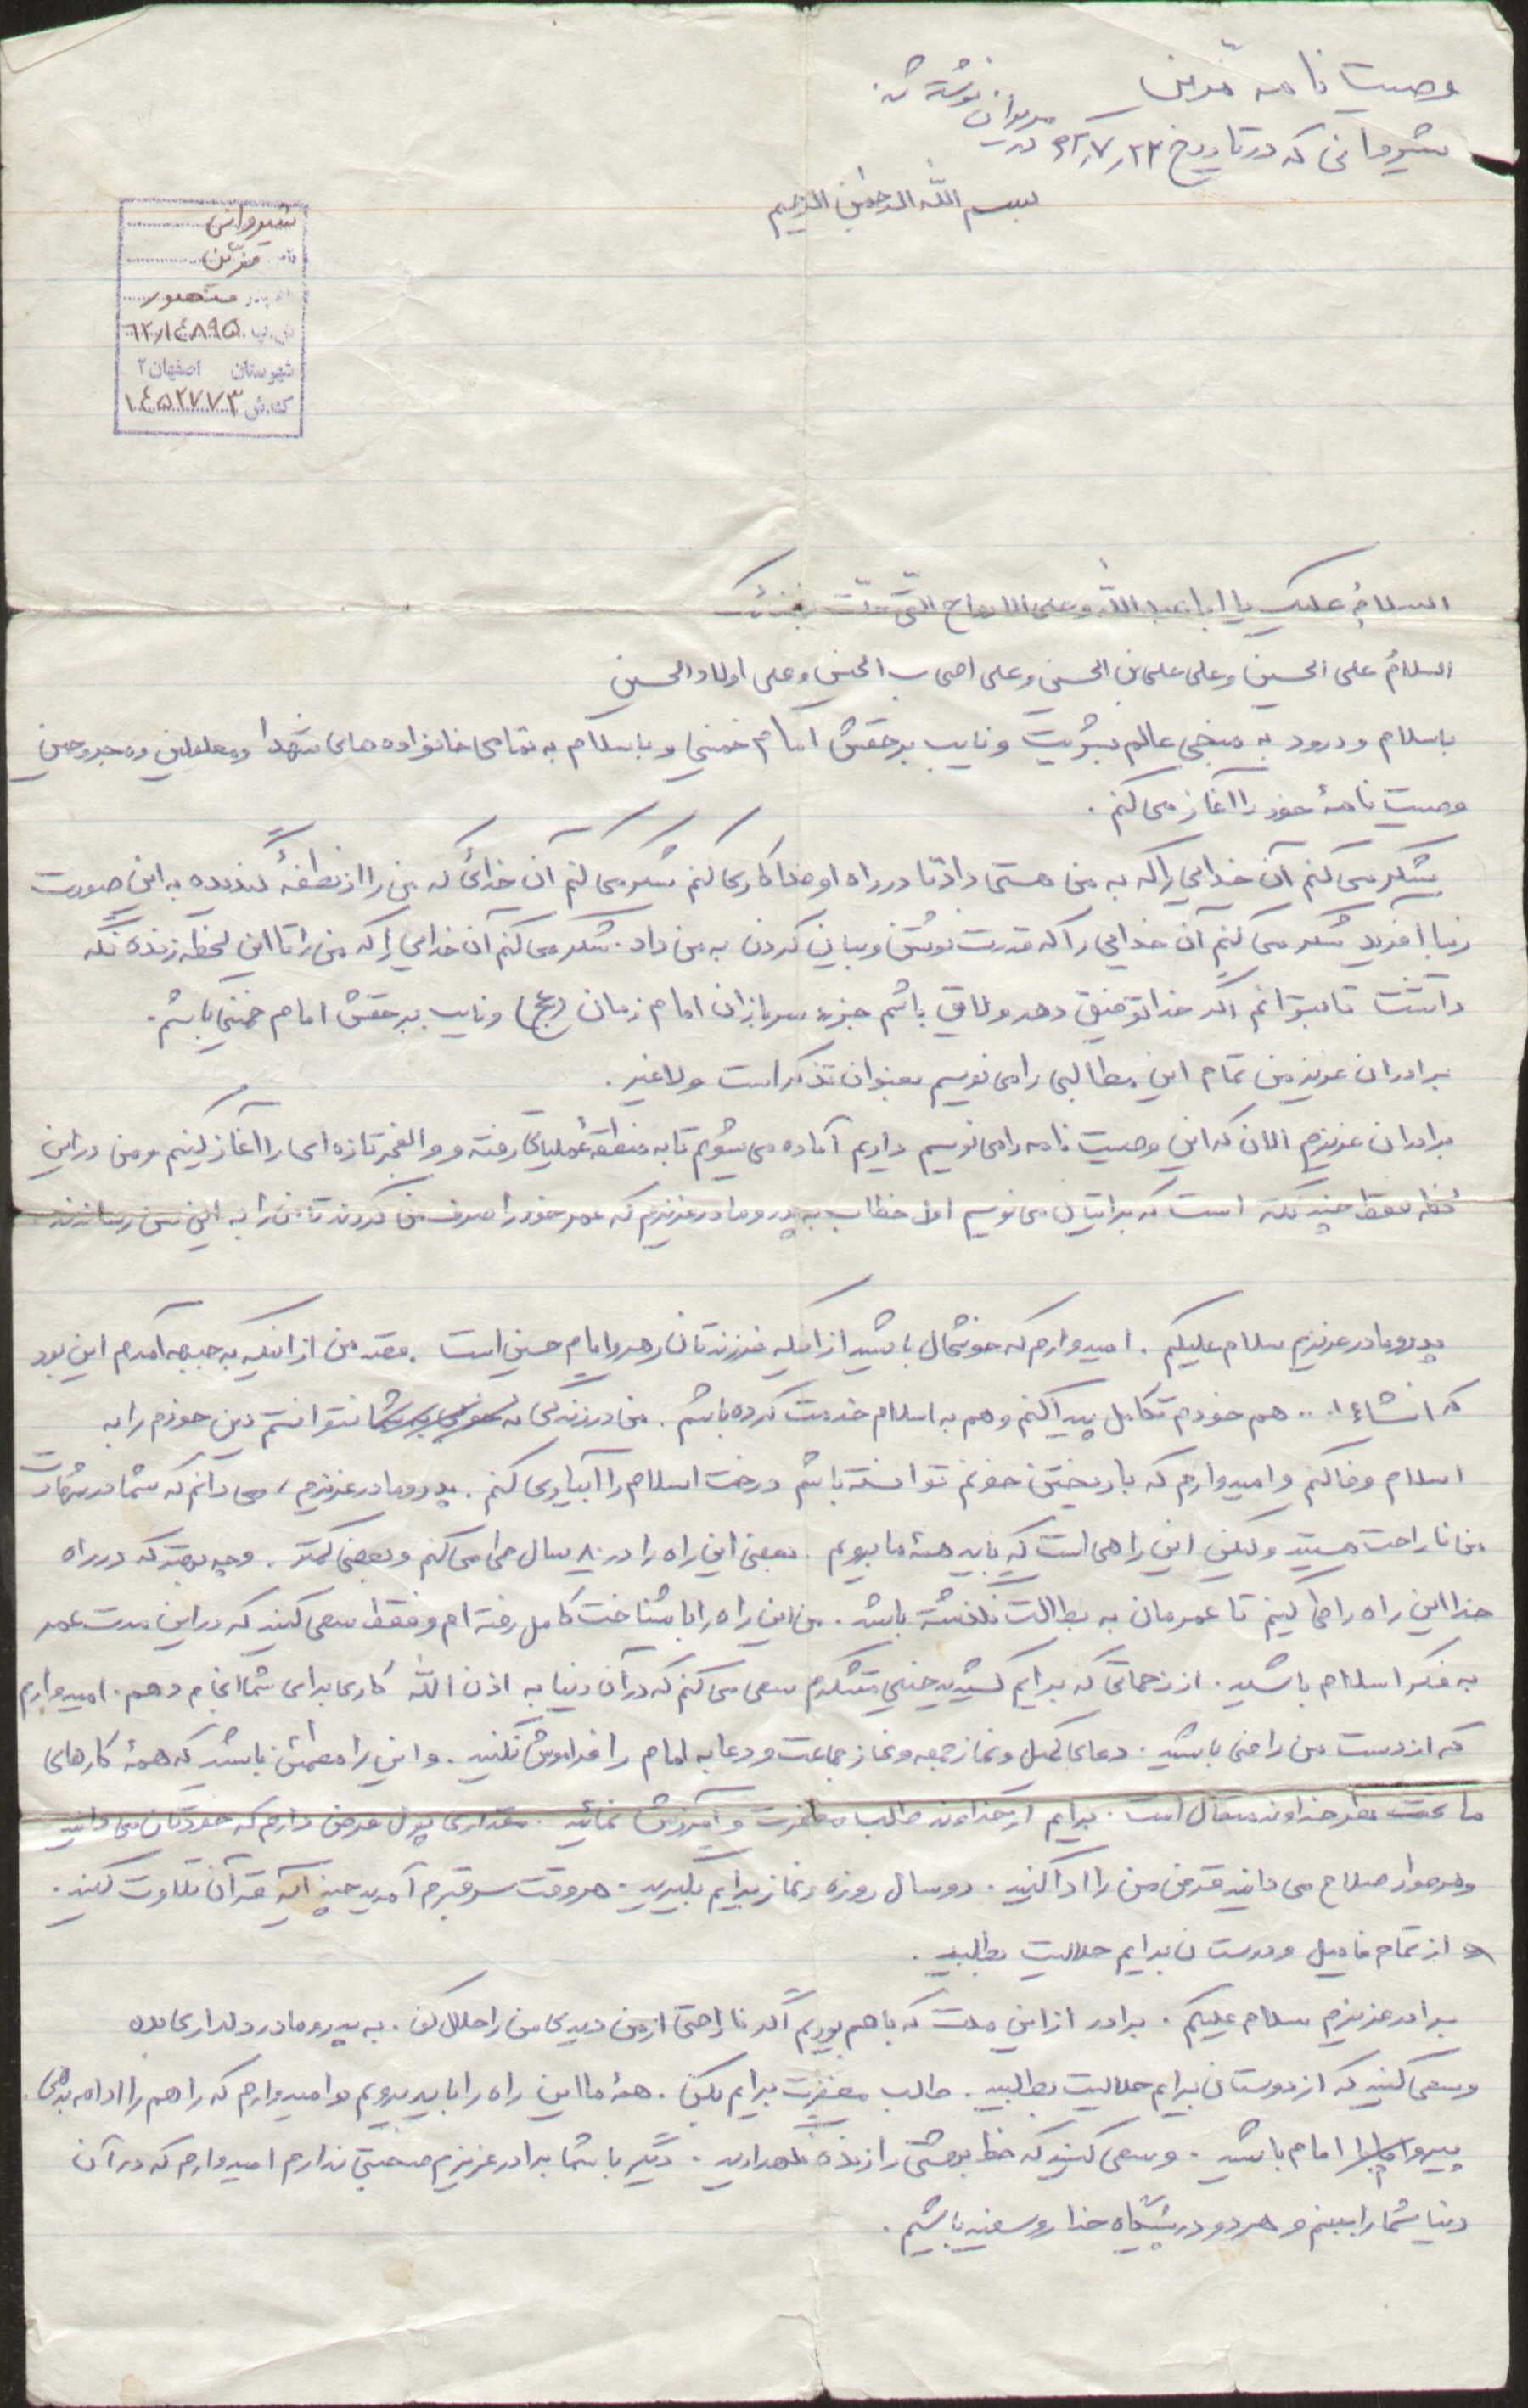 وصیت نامه مزین
شیروانی که در تاریخ ۶۲/۷/۲۳ در مریوان نوشته شد
بسم الله الرحمن الرحیم
شیروانی
نام مزین
نام پدر منصور
ش.پ ٦٢/١٤٨٩٥
شهرستان اصفهان ۲
کد.ش ١٤٥٢٧٧٣
السلام علیک یا ابا عبدالله و علی الارواح التی حلّت بفنائک
السلام علی الحسین و علی علی بن الحسین و علی اصحاب الحسین و علی اولاد الحسین
باسلام و درود به منجی عالم بشریت و نایب برحقش امام خمینی و باسلام به تمامی خانواده های شهدا و معلولین و مجروحین
وصیت نامهٔ خود را آغاز می کنم .
شکر می کنم آن خدایی را که به من هستی داد تا در راه او فداکاری کنم شکر می کنم آن خدائی که من را از نطفهٔ گندیده به این صورت
زیبا آفرید شکر می کنم آن خدایی را که قدرت نوشتن و بیان کردن به من داد . شکر می کنم آن خدایی را که من را تا این لحظه زنده نگه
داشت تا بتوانم اگر خدا توفیق دهد و لایق باشم جزء سربازان امام زمان (عج) و نایب برحقش امام خمینی باشم .
برادران عزیز من تمام این مطالبی را می نویسم بعنوان تذکر است ولاغیر .
برادران عزیزم الان که این وصیت نامه را می نویسم داریم آماده می شویم تا به منطقهٔ عملیاتی رفته و والفجر تازه ای را آغاز کنیم و من در این
لحظه فقط چند نکته است که برایتان می نویسم اول خطاب به پدر و مادر عزیزم که عمر خود را صرف من کردند تا من را به این سن رساندند
پدر و مادر عزیزم سلام علیکم . امیدوارم که خوشحال باشید از اینکه فرزندتان رهرو امام حسین است . مقصد من از اینکه به جبهه آمدم این بود
که انشاءا... هم خودم تکامل پیدا کنم و هم به اسلام خدمت کرده باشم . من در زندگی نتوانستم دین خودم را به
اسلام وفا کنم و امیدوارم که با ریختن خونم توانسته باشم درخت اسلام را آبیاری کنم . پدر و مادر عزیزم، می دانم که شما در شهادت
من ناراحت هستید ولیکن این راهی است که باید همهٔ ما برویم . بعضی این راه را در ۸۰ سال طی می کنم و بعضی کمتر . و چه بهتر که در راه
خدا این راه را طی کنیم تا عمرمان به بطالت نگذشته باشد . من این راه را با شناخت کامل رفته ام و فقط سعی کنید که در این مدت عمر
به فکر اسلام باشید . از زحماتی که برایم کشیدید خیلی متشکرم سعی می کنم که در آن دنیا به اذن الله کاری برای شما انجام دهم . امیدوارم
که از دست من راضی باشید . دعای کمیل و نماز جمعه و نماز جماعت و دعا به امام را فراموش نکنید . و این را مطمئن باشید که همهٔ کارهای
ما تحت نظر خداوند متعال است . برایم از خداوند طلب مغفرت و آمرزش نمائید . مقداری پول قرض دارم که خودتان می دانید
و هرطور صلاح می دانید قرض من را ادا کنید . دو سال روزه و نماز برایم بگیرید . هروقت سر قبرم آمدید چند آیه قرآن تلاوت کنید .
و از تمام فامیل و دوستان برایم حلالیت بطلبید .
برادر عزیزم سلام علیکم . برادر از این مدت که باهم بودیم اگر ناراحتی از من دیدی من را حلال کن . به پدر و مادر دلداری بده
و سعی کنید که از دوستان برایم حلالیت بطلبید . طلب مغفرت برایم بکن . همهٔ ما این راه را باید برویم و امیدوارم که راهم را ادامه بدهی .
پیرو امام باشید . و سعی کنید که خط بهشتی را زنده نگهدارید . دیگر با شما برادر عزیزم صحبتی ندارم امیدوارم که در آن
دنیا شما را ببینم و هردو در پیشگاه خدا رو سفید باشیم .